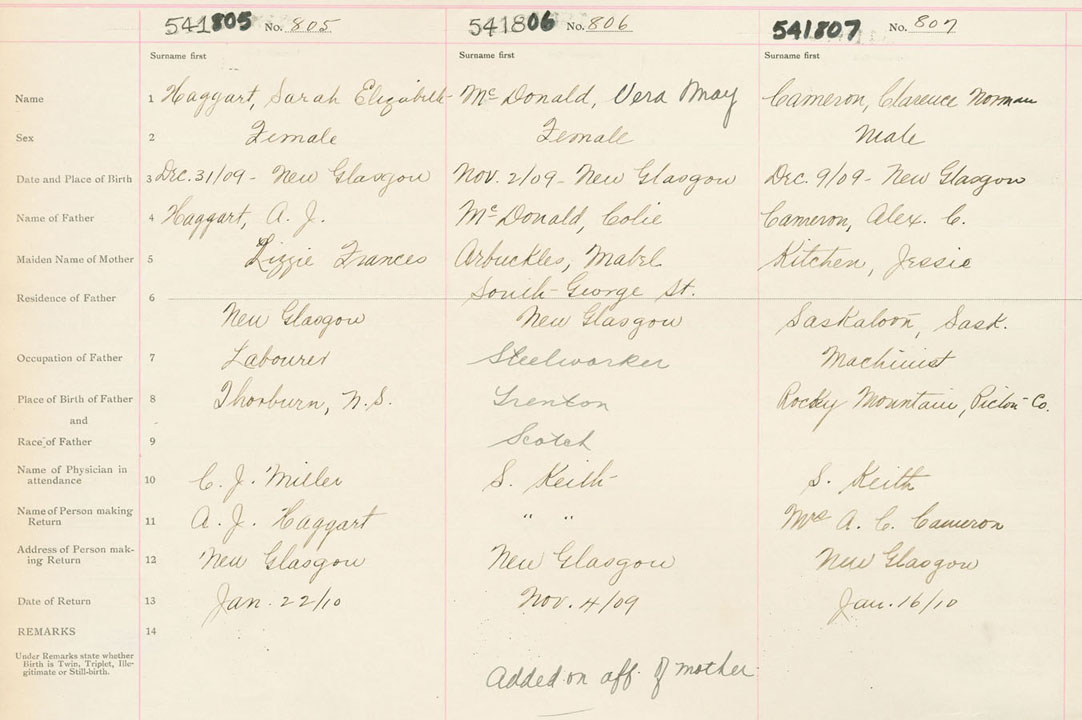 541805 No. 805 541806 No. 806 541807 No. 807
Surname first Surname first Surname first
Name 1 Haggart, Sarah Elizabeth McDonald, Vera May Cameron, Clarence Norman
Sex 2 Female Female Male
Date and Place of Birth 3 Dec. 31/09 - New Glasgow Nov. 2/09 - New Glasgow Dec. 9/09 - New Glasgow
Name of Father 4 Haggart, A. J. McDonald, Colie Cameron, Alex. C.
Maiden Name of Mother 5 Lizzie Frances Arbuckles, Mabel Kitchen, Jessie
South George St.
Residence of Father 6
New Glasgow New Glasgow Saskatoon, Sask.
Occupation of Father 7 Labourer Steelworker Machinist
Place of Birth of Father 8 Thorburn, N.S. Trenton Rocky Mountain, Pictou Co.
and
Race of Father 9 Scotch
Name of Physician in
attendance 10 C. J. Miller S. Keith S. Keith
Name of Person making
Return 11 A. J. Haggart " " Mrs A. C. Cameron
Address of Person mak-
ing Return 12 New Glasgow New Glasgow New Glasgow
Date of Return 13 Jan. 22/10 Nov. 4/09 Jan. 16/10
REMARKS 14
Under Remarks state whether
Birth is Twin, Triplet, Ille-
gitimate or Still-birth.
Added on aff. of mother